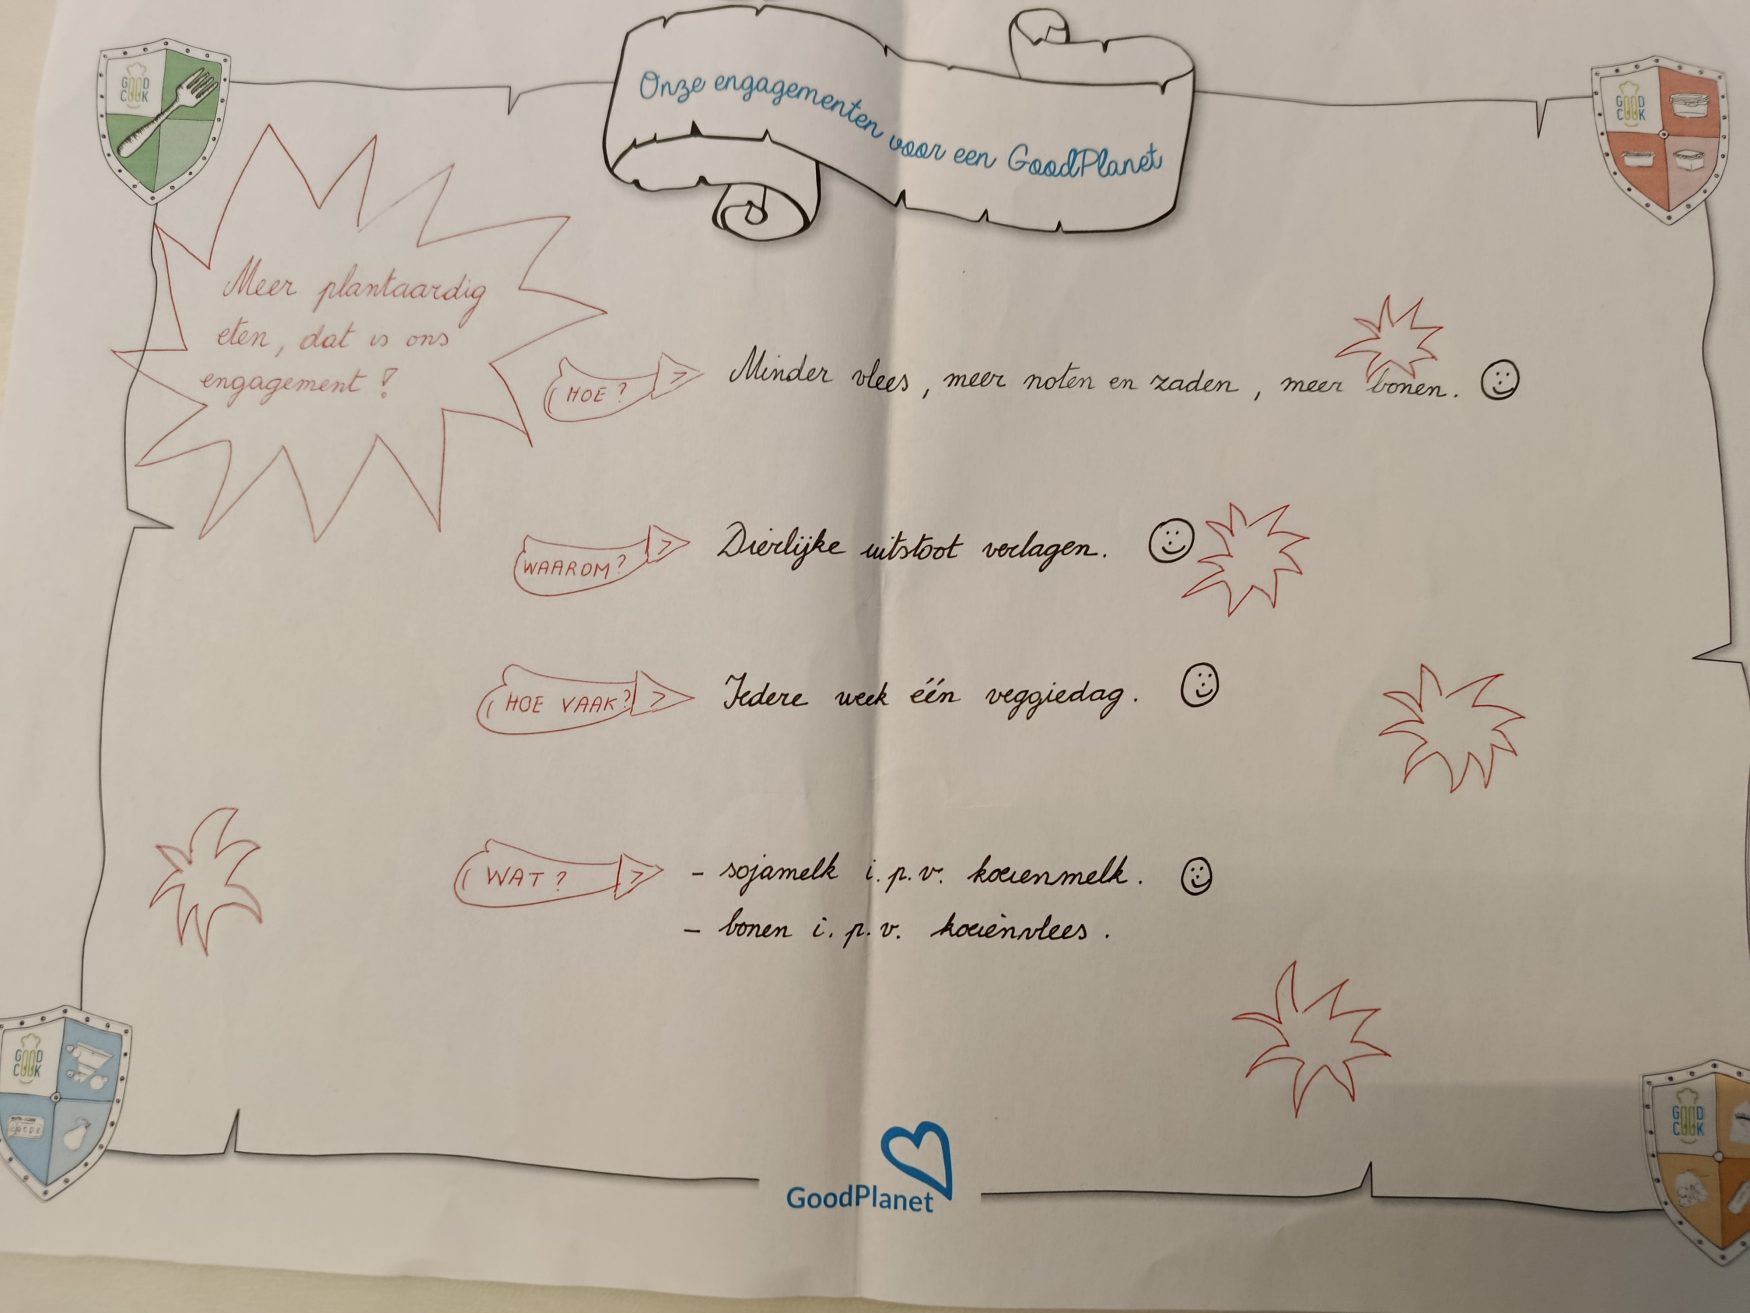 Onze engagementen voor een GoodPlanet
GOOD
COOK
GOOD
COOK
Meer plantaardig
eten, dat is ons
engagement !
HOE ?
Minder vlees, meer noten en zaden, meer bonen.
WAAROM ?
Dierlijke uitstoot verlagen.
HOE VAAK ?
Iedere week één veggiedag.
WAT ?
- sojamelk i.p.v. koeienmelk.
- bonen i.p.v. koeienvlees.
GOOD
COOK
GOOD
COOK
GoodPlanet